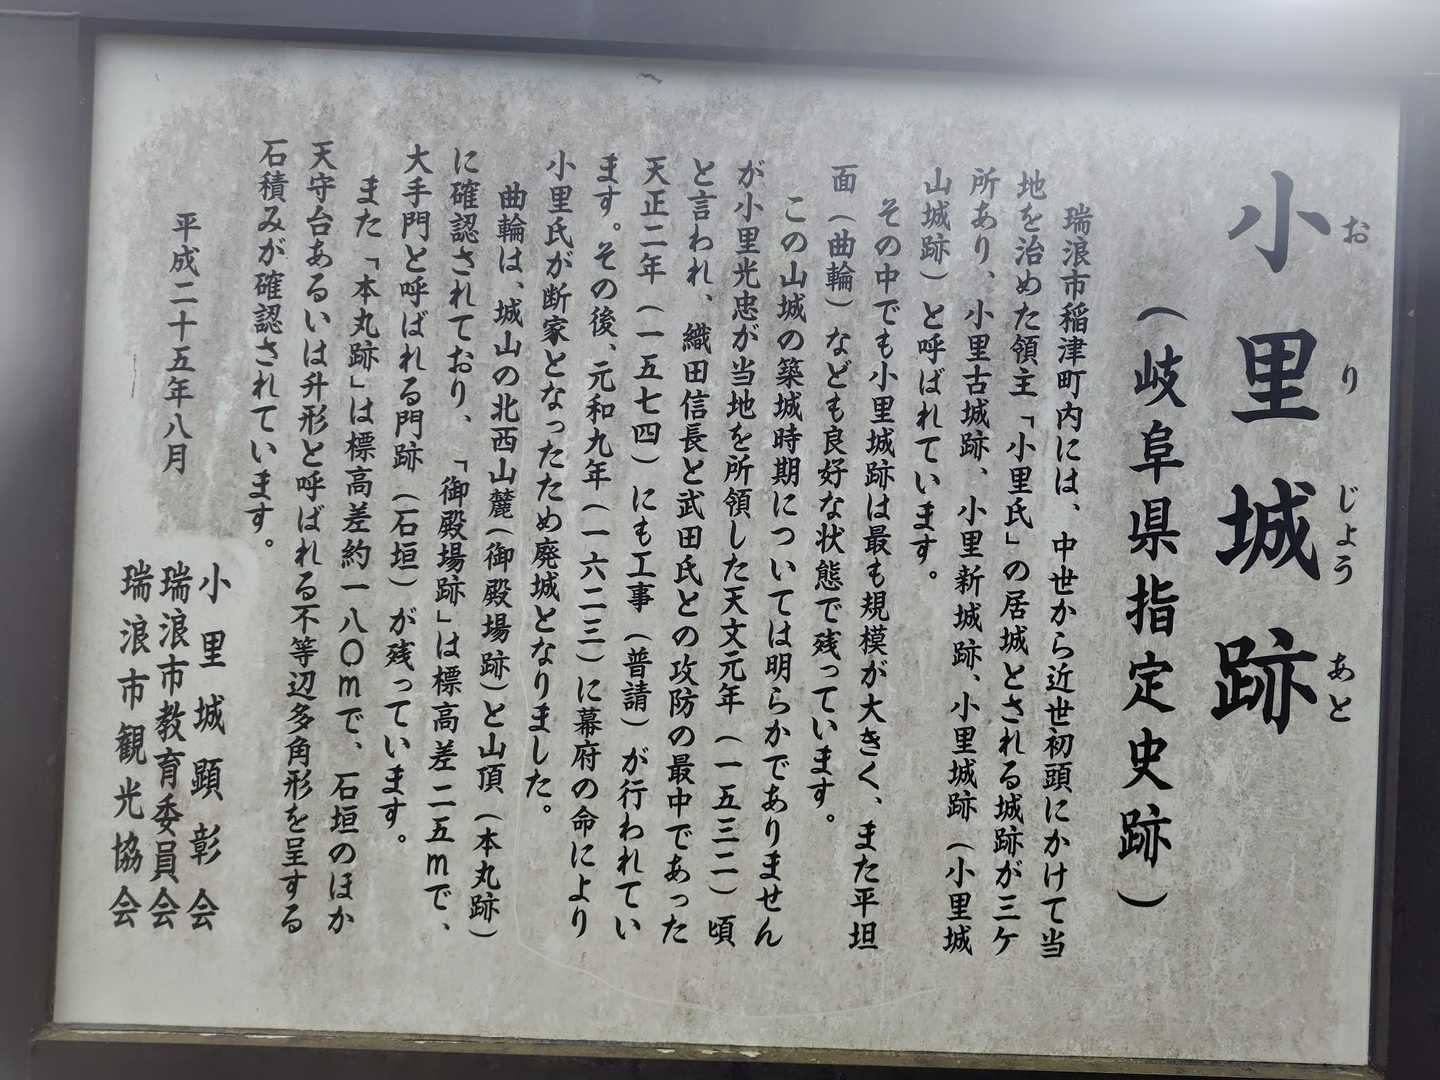 小里城跡
おりじょうあと
(岐阜県指定史跡)
瑞浪市稲津町内には、中世から近世初頭にかけて当
地を治めた領主「小里氏」の居城とされる城跡が三ケ
所あり、小里古城跡、小里新城跡、小里城跡（小里城
山城跡）と呼ばれています。
その中でも小里城跡は最も規模が大きく、また平坦
面（曲輪）なども良好な状態で残っています。
この山城の築城時期については明らかでありません
が小里光忠が当地を所領した天文元年（一五三二）頃
と言われ、織田信長と武田氏との攻防の最中であった
天正二年（一五七四）にも工事（普請）が行われてい
ます。その後、元和九年（一六二三）に幕府の命により
小里氏が断家となったため廃城となりました。
曲輪は、城山の北西山麓（御殿場跡）と山頂（本丸跡）
に確認されており、「御殿場跡」は標高差二五mで、
大手門と呼ばれる門跡（石垣）が残っています。
また「本丸跡」は標高差約一八〇mで、石垣のほか
天守台あるいは升形と呼ばれる不等辺多角形を呈する
石積みが確認されています。
平成二十五年八月
小里城顕彰会
瑞浪市教育委員会
瑞浪市観光協会